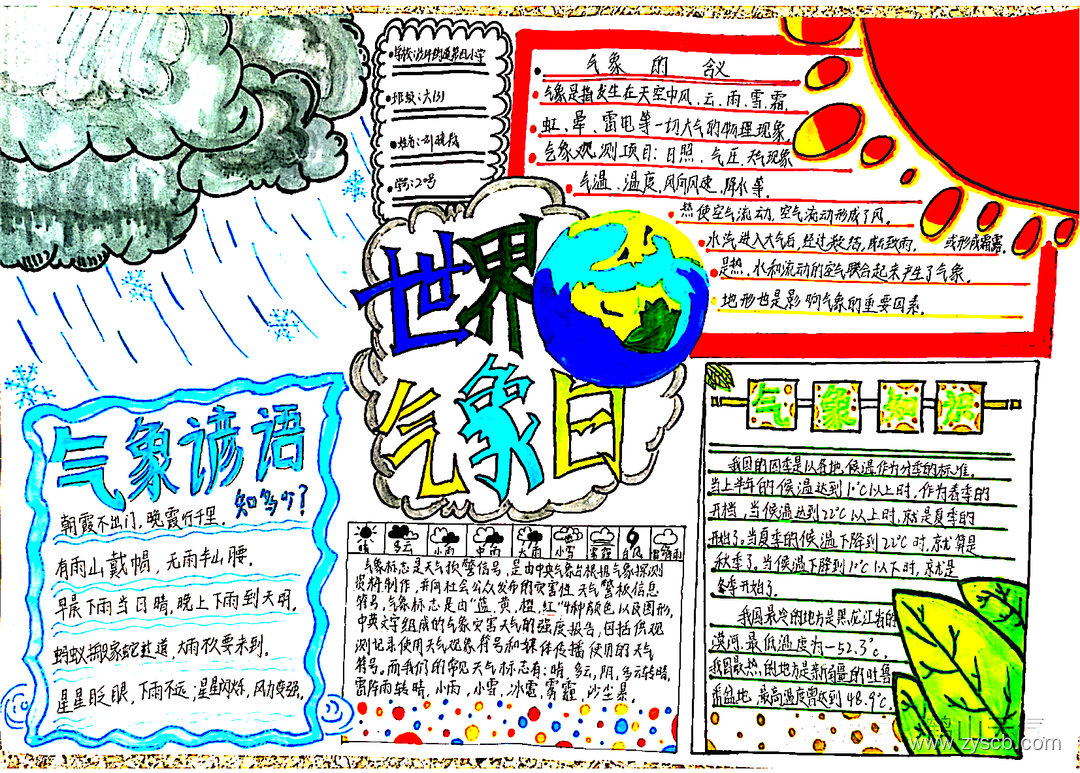 学校:
班级:六(3)
姓名:
学号:2号
世界
气象日
气象的含义
气象是指发生在天空中风、云、雨、雪、霜、
虹、晕、雷电等一切大气的物理现象
气象观测项目:日照、气压、天气现象
气温、湿度、风向风速、降水等.
热使空气流动,空气流动形成了风.
水汽进入大气后,经过凝结,形成雨, 或形成霜雾.
是热、水和流动的空气联合起来产生了气象.
地形也是影响气象的重要因素.
气象谚语
知多少?
朝霞不出门,晚霞行千里.
有雨山戴帽,无雨半山腰.
早晨下雨当日晴,晚上下雨到天明.
蚂蚁搬家蛇过道,大雨不久要来到.
星星眨眼,下雨不远;星星闪烁,风力变强.
晴 多云 小雨 中雨 大雨 小雪 雾霾 台风
气象标志是天气预警信号,是由中央气象台根据气象探测
资料制作,并向社会公众发布的灾害性天气警报信息
符号,气象标志是由"蓝、黄、橙、红"4种颜色以及图形,
中英文字组成的气象灾害天气的强度报告,包括供观
测记录使用天气现象符号和媒体传播使用的天气
符号,而我们的常见天气标志有:晴,多云,阴,多云转晴,
雷阵雨转晴,小雨,小雪,冰雹,雾霾,沙尘暴
气象知识
我国的四季是以各地候温作为分季的标准.
当上半年的候温达到10℃以上时,作为春季的
开档,当候温达到22℃以上时,就是夏季的
开始了.当夏季的候温下降到22℃时,就算是
秋季了.当候温下降到10℃以下时,就是
冬季开始了.
我国最冷的地方是黑龙江省的
漠河,最低温度为-52.3℃,
我国最热的地方是新疆的吐鲁
番盆地,最高温度曾达到48.9℃.
www.zyscb.com